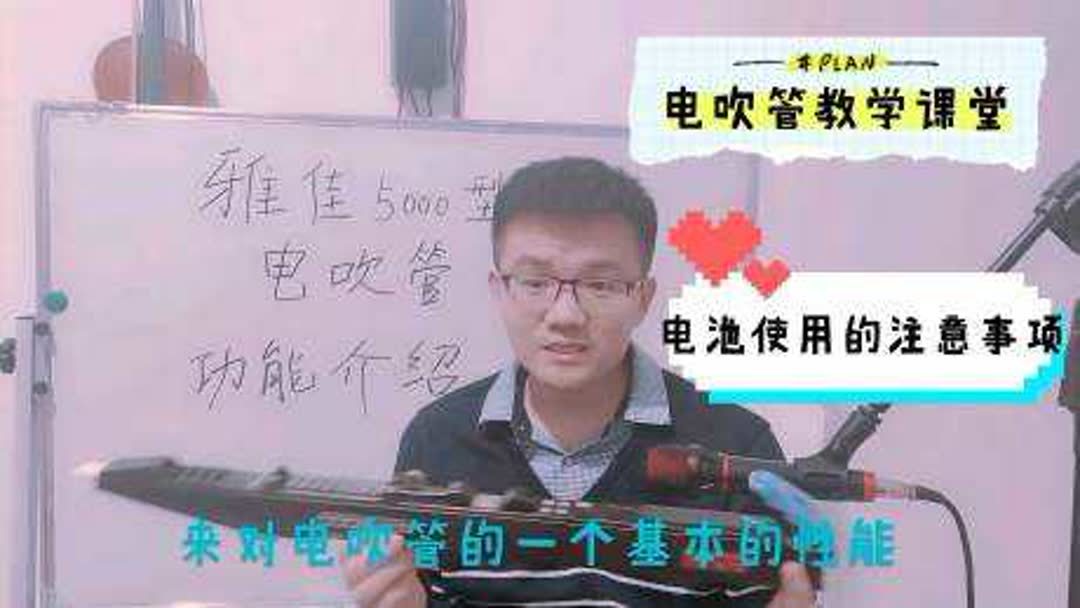 #PLAN
电吹管教学课堂
雅佳5000型
电吹管
功能介绍
电池使用的注意事项
来对电吹管的一个基本的性能